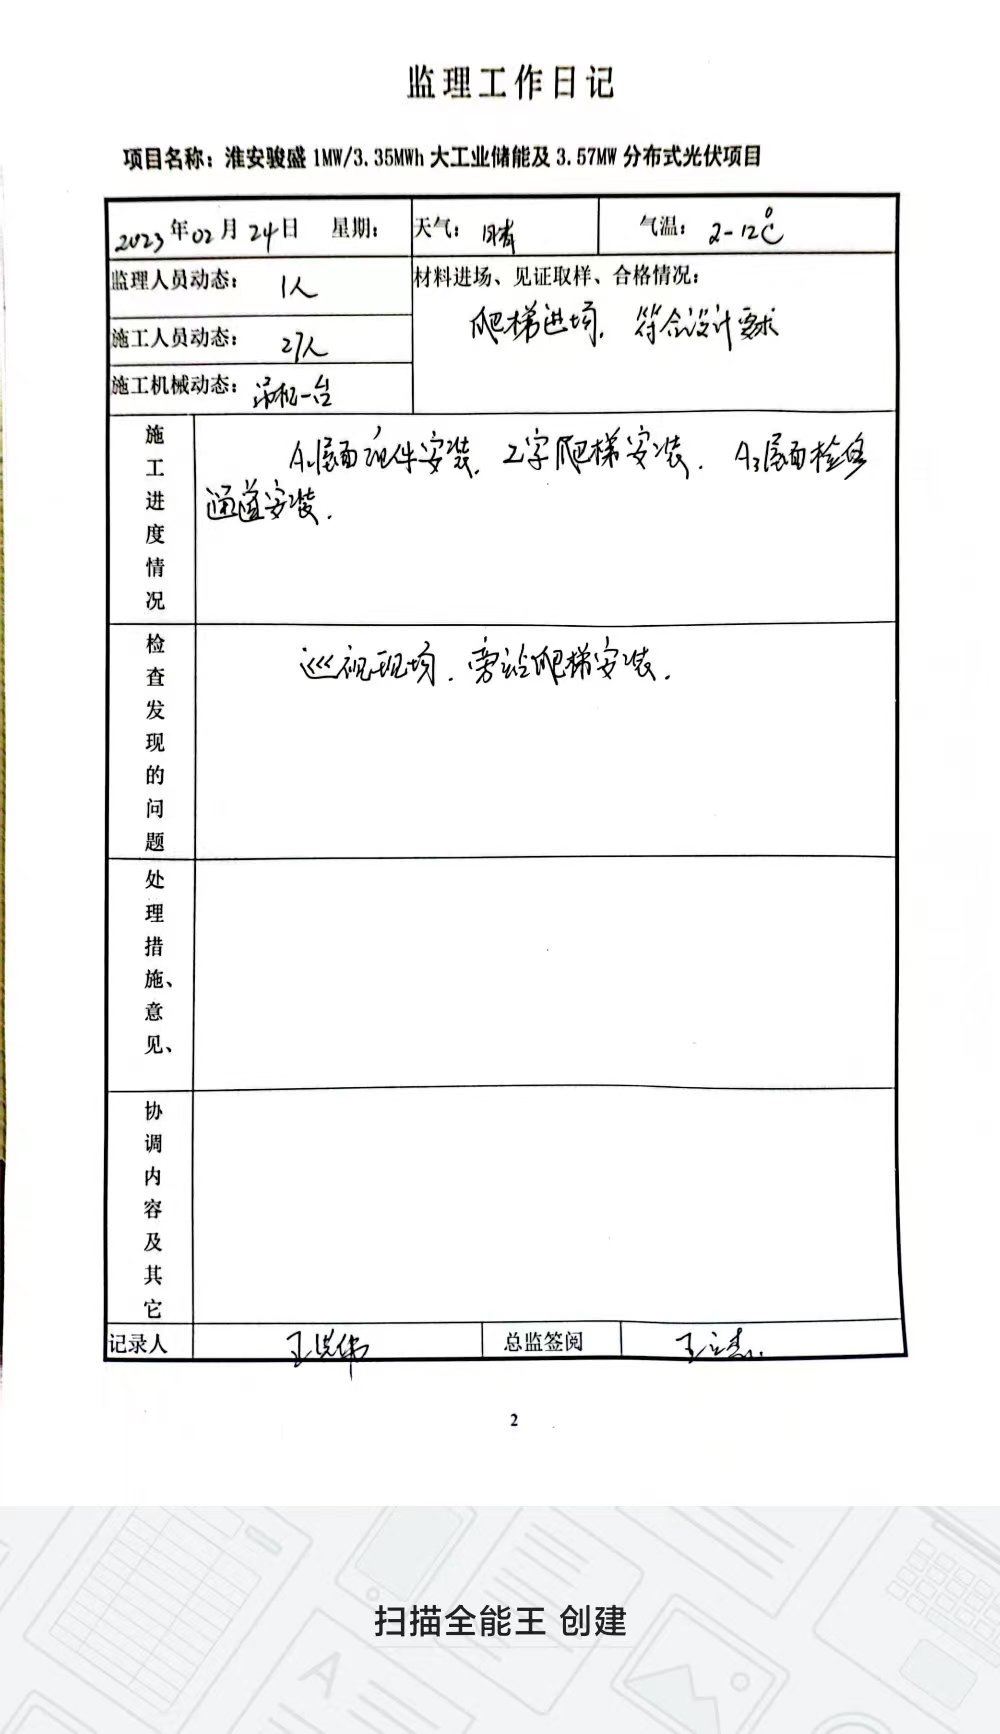 监理工作日记
项目名称：淮安骏盛1MW/3.35MWh大工业储能及3.57MW分布式光伏项目
2023年02月24日 星期： 天气：晴 气温：2-12℃
监理人员动态：1人
材料进场、见证取样、合格情况：
爬梯进场，符合设计要求
施工人员动态：27人
施工机械动态：吊机一台
施工进度情况
屋面组件安装，Z字爬梯安装，A3屋面检修
通道安装.
检查发现的问题
巡视现场.旁站爬梯安装.
处理措施、意见、
协调内容及其它
记录人 王 伟 总监签阅 王
2
扫描全能王 创建